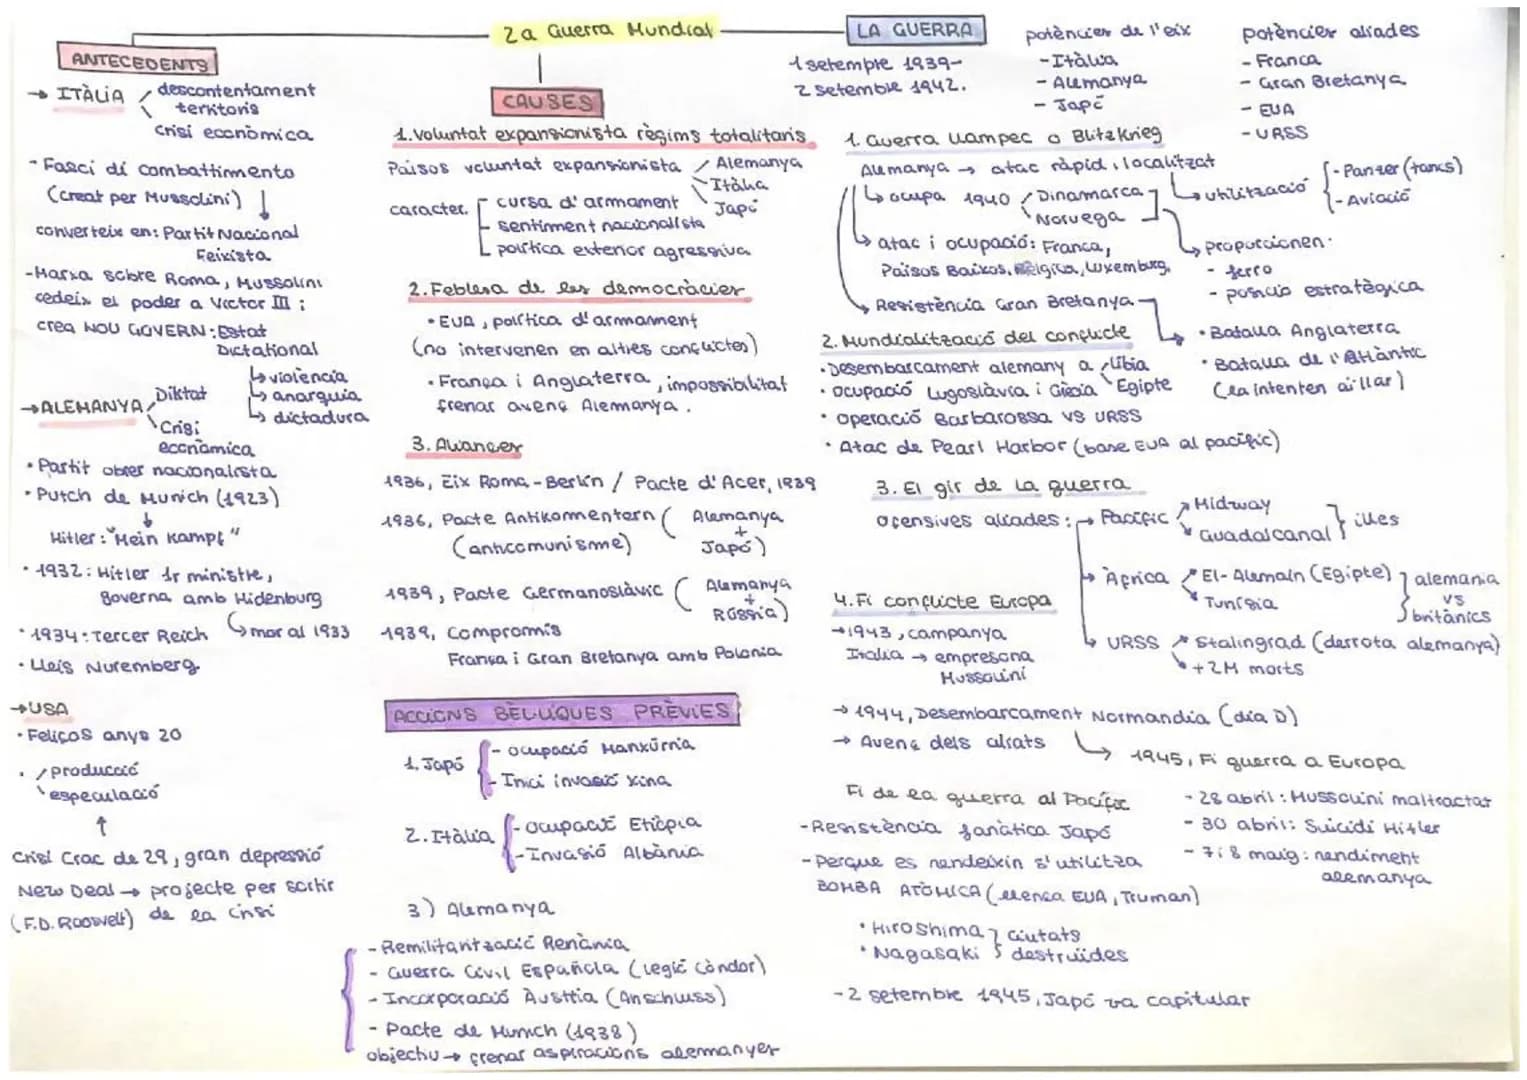 2a Guerra Mundial
ANTECEDENTS
→ ITÀLIA
descontentament
territoris
Crisi econòmica
- Fasci di combattimento
(creat per Mussolini)
converteix en: Partit Nacional
Feixista
- Marxa sobre Roma, Mussolini
cedeix el poder a Victor III i
crea NOU GOVERN: Estat
Dictational
↳ violència
↳ anarquia
↳ dictadura
→ ALEMANYA
Diktat
Crisi
econòmica
• Partit obrer nacionalista
• Putch de Munich (1923)
↓
Hitler: "Mein Kampf"
• 1932: Hitler 1r ministre,
governa amb Hidenburg
↳ mor al 1933
• 1934: Tercer Reich
• Lleis Nuremberg
→ USA
• Feliços anys 20
• producció
especulació
↑
Crisi Crac de 29, gran depressió
New Deal → projecte per sortir
(F.D. Roosvelt) de la crisi
CAUSES
1. Voluntat expansionista règims totalitaris
Països voluntat expansionista
Alemanya
Itàlia
Japó
caracter.
cursa d'armament
sentiment nacionalista
política exterior agressiva
2. Feblesa de les democràcies
• EUA, política d'armament
(no intervenen en altres conflictes)
• França i Anglaterra, impossibilitat
frenar avenç Alemanya.
3. Aliances
1936, Eix Roma-Berlín / Pacte d'Acer, 1939
1936, Pacte Antikommentern ( Alemanya
+
(anticomunisme) Japó)
1939, Pacte Germanoslàvic ( Alemanya
+
Rússia)
1939, Compromís
França i Gran Bretanya amb Polonia
ACCIONS BÈL·LIQUES PRÈVIES
1. Japó
- ocupació Manxúria
- Inici invasió Xina
2. Itàlia
- Ocupació Etiòpia
- Invasió Albània
3) Alemanya
- Remilitarització Renània
- Guerra Civil Española (Legió Còndor)
- Incorporació Àustria (Anschluss)
- Pacte de Munich (1938)
objectiu → frenar aspiracions alemanyes
LA GUERRA
1 setembre 1939-
2 setembre 1942.
potències de l'eix
- Itàlia
- Alemanya
- Japó
potències aliades
- Franca
- Gran Bretanya
- EUA
- URSS
1. Guerra llampec o Blitzkrieg
Alemanya → atac ràpid i localitzat
↳ utilització
- Panzer (tancs)
- Aviació
↳ ocupa 1940
Dinamarca
Noruega
↳ proporcionen:
- ferro
- posició estratègica
↳ atac i ocupació: Franca,
Països Baixos, Bèlgica, Luxemburg.
↳ Resistència Gran Bretanya
• Batalla Anglaterra
• Batalla de l'Atlàntic
(la intenten aïllar)
2. Mundialització del conflicte
• Desembarcament alemany a
Líbia
Egipte
• Ocupació Iugoslàvia i Grècia
• Operació Barbarossa VS URSS
• Atac de Pearl Harbor (base EUA al pacífic)
3. El gir de la guerra
Ofensives aliades:
→ Pacífic
Midway
Guadalcanal
illes
→ Àfrica
El-Alamain (Egipte)
Tunísia
alemania
vs
britànics
↳ URSS
Stalingrad (derrota alemanya)
+2M morts
4. Fi conflicte Europa
→ 1943, campanya
Itàlia → empresona
Mussolini
→ 1944, Desembarcament Normandia (dia D)
→ Avenç dels aliats
↳ 1945, Fi guerra a Europa
- 28 abril: Mussolini maltractat
- 30 abril: Suïcidi Hitler
- 7 i 8 maig: rendiment
alemanya
Fi de la guerra al Pacífic
- Resistència fanàtica Japó
- Perque es rendeixin s'utilitza
BOMBA ATÒMICA (llença EUA, Truman)
• Hiroshima
• Nagasaki
ciutats
destruïdes
- 2 setembre 1945, Japó va capitular